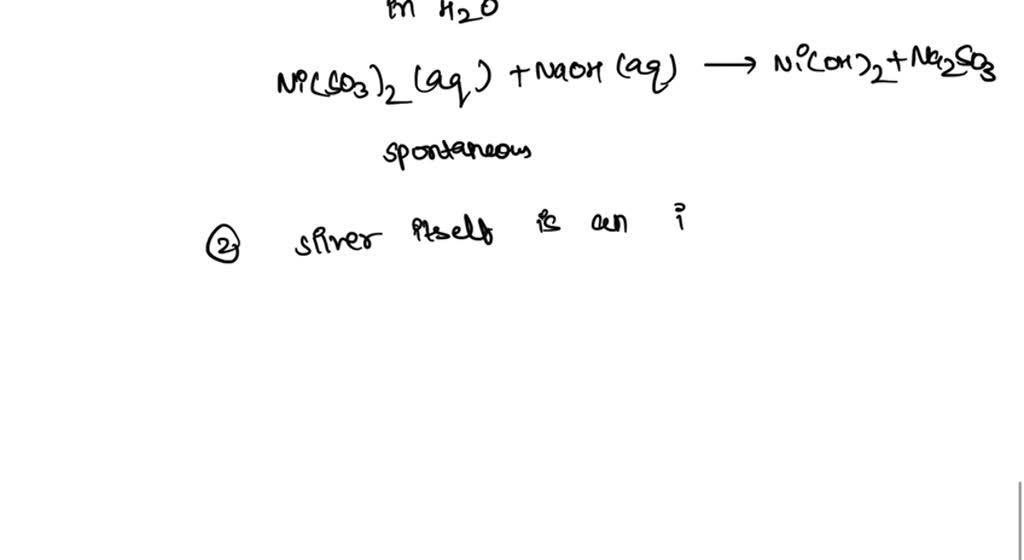 in H2O
Ni(SO3)2 (aq) + NaOH (aq) → Ni(OH)2 + Na2SO3
spontaneous
② silver itself is an i